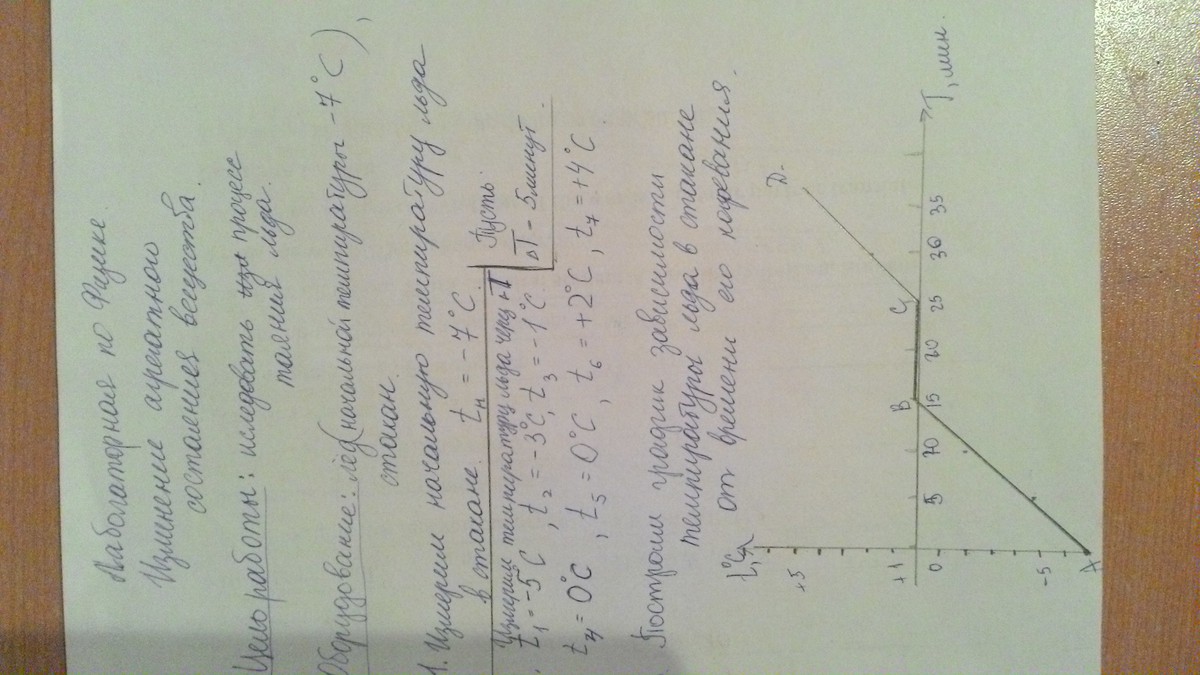 Лаболаторная по Физике.
Изменение агрегатного
состаяния вещества.
Цель работы: иследовать процесс
таяния льда.
Оборудование: лёд (начальной температуры -7°C),
стакан.
1. Измерим начальную температуру льда
в стакане. tн = -7°C
Измерим температуру льда через ΔT
Пусть
ΔT - 5 минут.
t1 = -5°C, t2 = -3°C, t3 = -1°C
t4 = 0°C, t5 = 0°C, t6 = +2°C, t7 = +4°C
Построим график зависимости
температуры льда в стакане
от времени его нагревания.
t,°C
+5
+1
0
-5
A
B
C
D
5 10 15 20 25 30 35
T, мин.